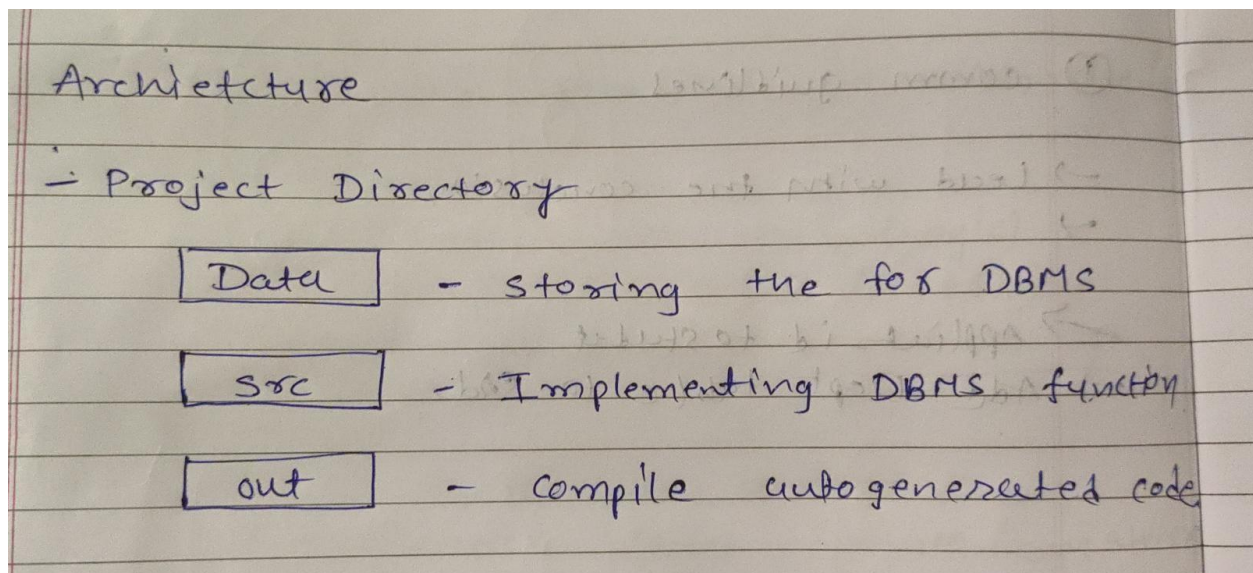 Archietcture
- Project Directory
Data - storing the for DBMS
src - Implementing DBMS function
out - compile autogenerated code